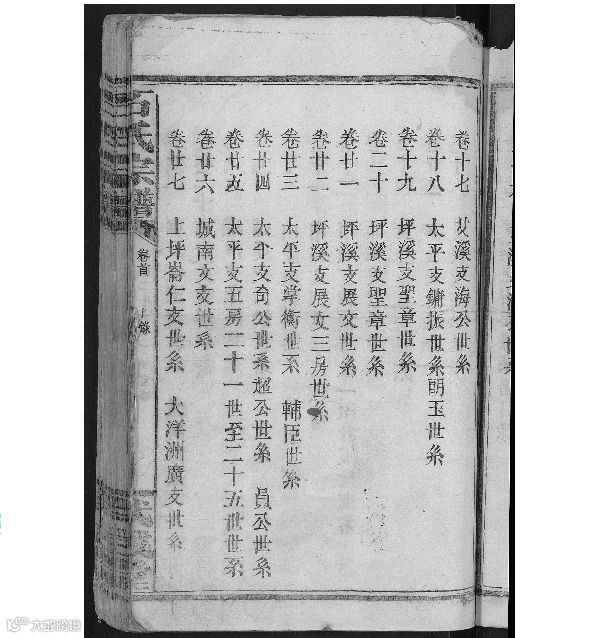 卷十七　艾溪支海公世系
卷十八　太平支鏞振世系明玉世系
卷十九　坪溪支聖章世系
卷二十　坪溪支聖章世系
卷廿一　坪溪支展文世系
卷廿二　坪溪支展文三房世系
卷廿三　太平支掌衡世系　輔臣世系
卷廿四　太平支奇公世系超公世系　員公世系
卷廿五　太平支五房二十一世至二十五世世系
卷廿六　城南文支世系
卷廿七　上坪崙仁支世系　大洋洲廣支世系
石氏宗譜
卷首
目錄
大成族谱